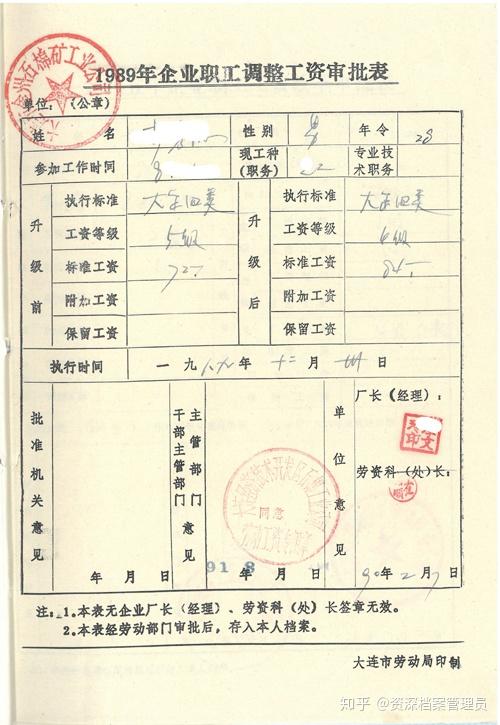 1989年企业职工调整工资审批表
单位：（公章）
姓 名 性别 男 年令 28
参加工作时间 现工种（职务） 专业技术职务
升级前 执行标准 大字四类 升级后 执行标准 大字四类
工资等级 5级 工资等级 6级
标准工资 标准工资
附加工资 附加工资
保留工资 保留工资
执行时间 一九八九年 十二月 卅日
批准机关意见 年 月 日
干部主管部门 主管部门意见 同意 91 8 年 月 日
单位意见 厂长（经理）：
劳资科（处）长：
90年2月7日
注：1.本表无企业厂长（经理）、劳资科（处）长签章无效。
2.本表经劳动部门审批后，存入本人档案。
大连市劳动局印制
知乎 @资深档案管理员